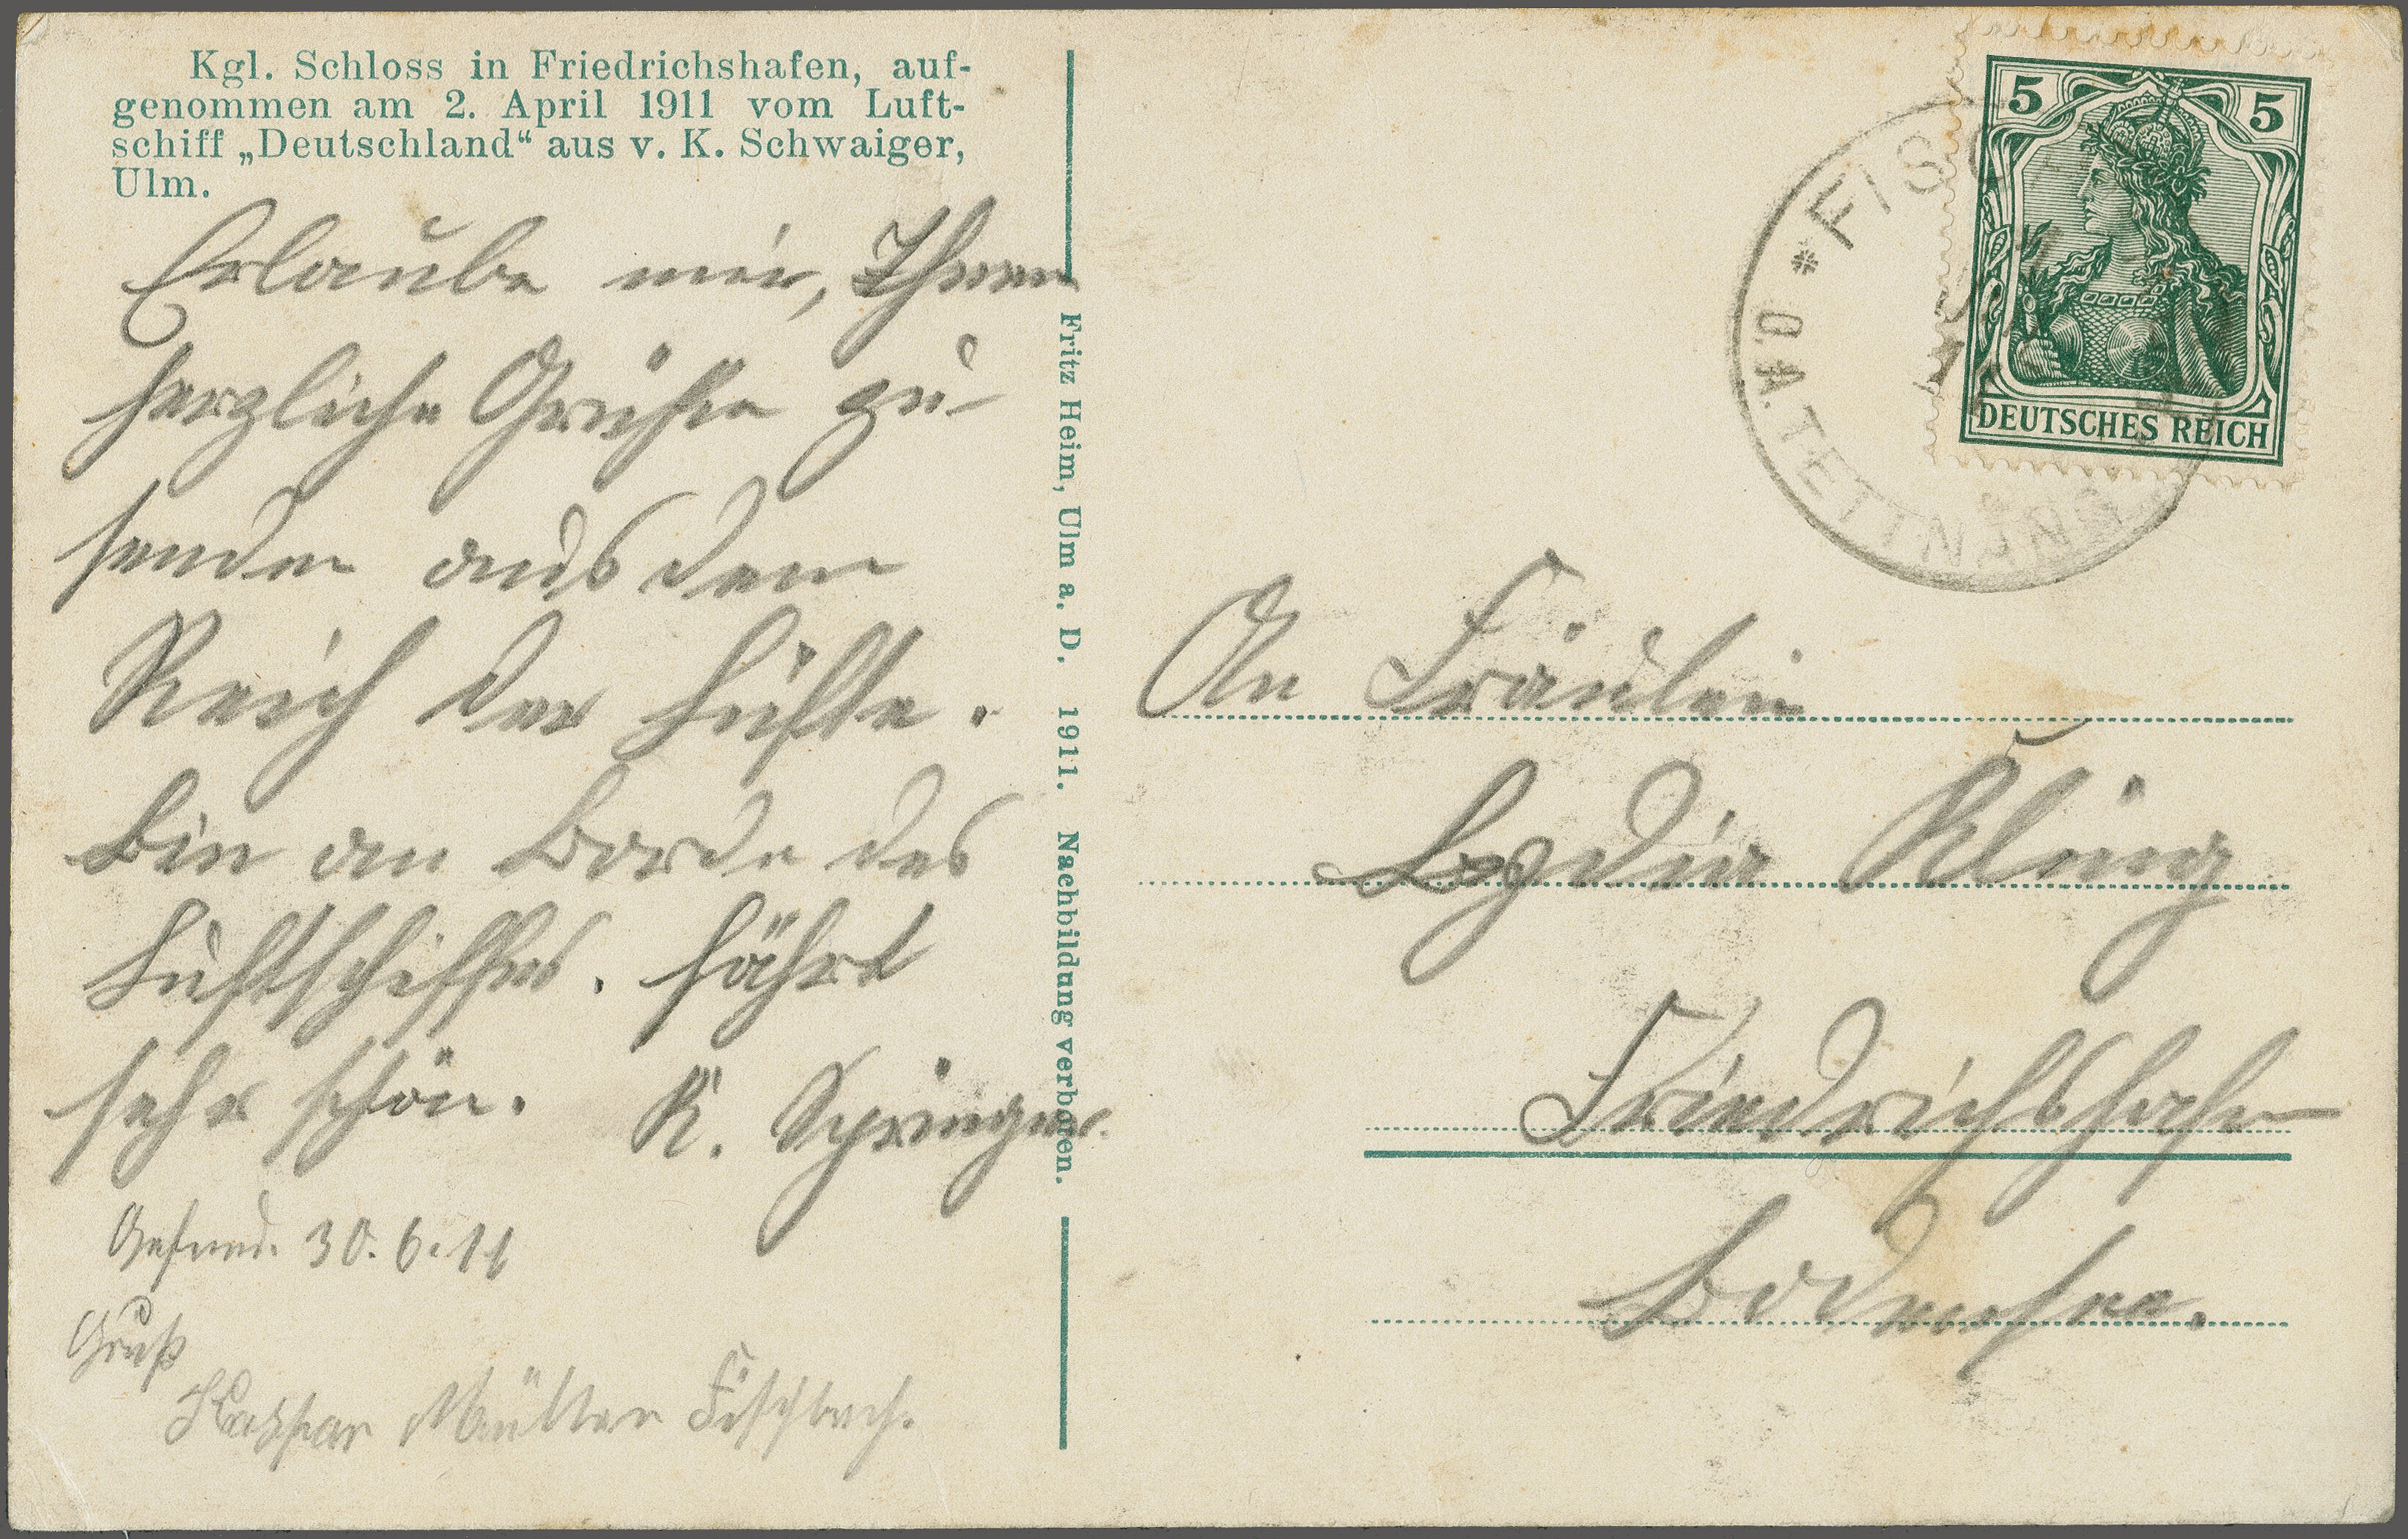 Kgl. Schloss in Friedrichshafen, auf-
genommen am 2. April 1911 vom Luft-
schiff „Deutschland“ aus v. K. Schwaiger,
Ulm.
Erlaube mir, Ihnen
herzliche Grüße zu-
senden aus dem
Reich der Lüfte.
Bin an Borde des
Luftschiffes. fährt
sehr schön. K. Springer.
Gefund. 30.6.11
Gruß
Kaspar Müller Fischbach.
Fritz Heim, Ulm a. D. 1911. Nachbildung verboten.
5 5
DEUTSCHES REICH
* FISC
O.A. TETTNANG
An Fräulein
Lydia Kling
Friedrichshafen
Bodensee.